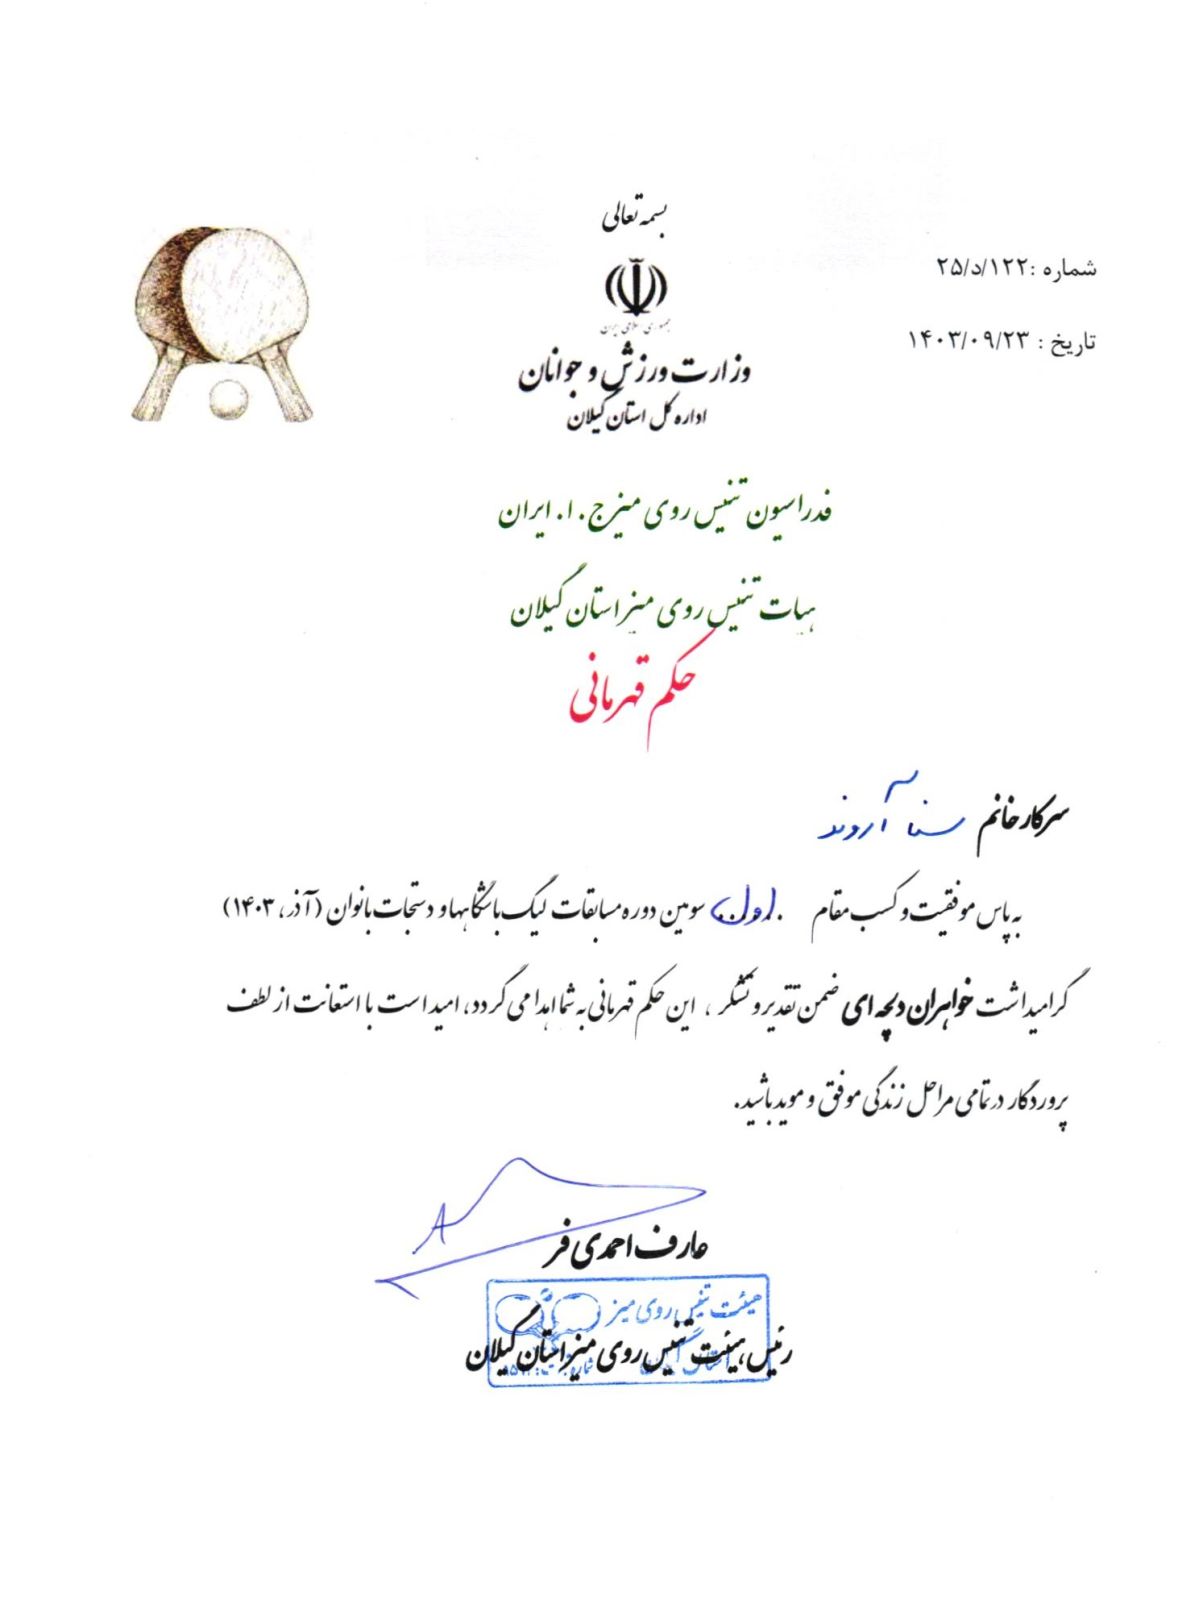 بسمه تعالی
شماره :۱۲۲/د/۲۵
جمهوری اسلامی ایران
تاریخ : ۱۴۰۳/۰۹/۲۳
وزارت ورزش و جوانان
اداره کل استان گیلان
فدراسیون تنیس روی میز ج . ا . ایران
هیات تنیس روی میز استان گیلان
حکم قهرمانی
سرکار خانم سنا آروند
به پاس موفقیت و کسب مقام اول سومین دوره مسابقات لیگ باشگاهها و دستجات بانوان (آذر، ۱۴۰۳)
گرامیداشت خواهران دیلچه ای ضمن تقدیر و تشکر ، این حکم قهرمانی به شما اهدا می گردد، امید است با استعانت از لطف
پروردگار در تمامی مراحل زندگی موفق و موید باشید.
عارف احمدی فر
هیئت تنیس روی میز
رئیس هیئت تنیس روی میز استان گیلان